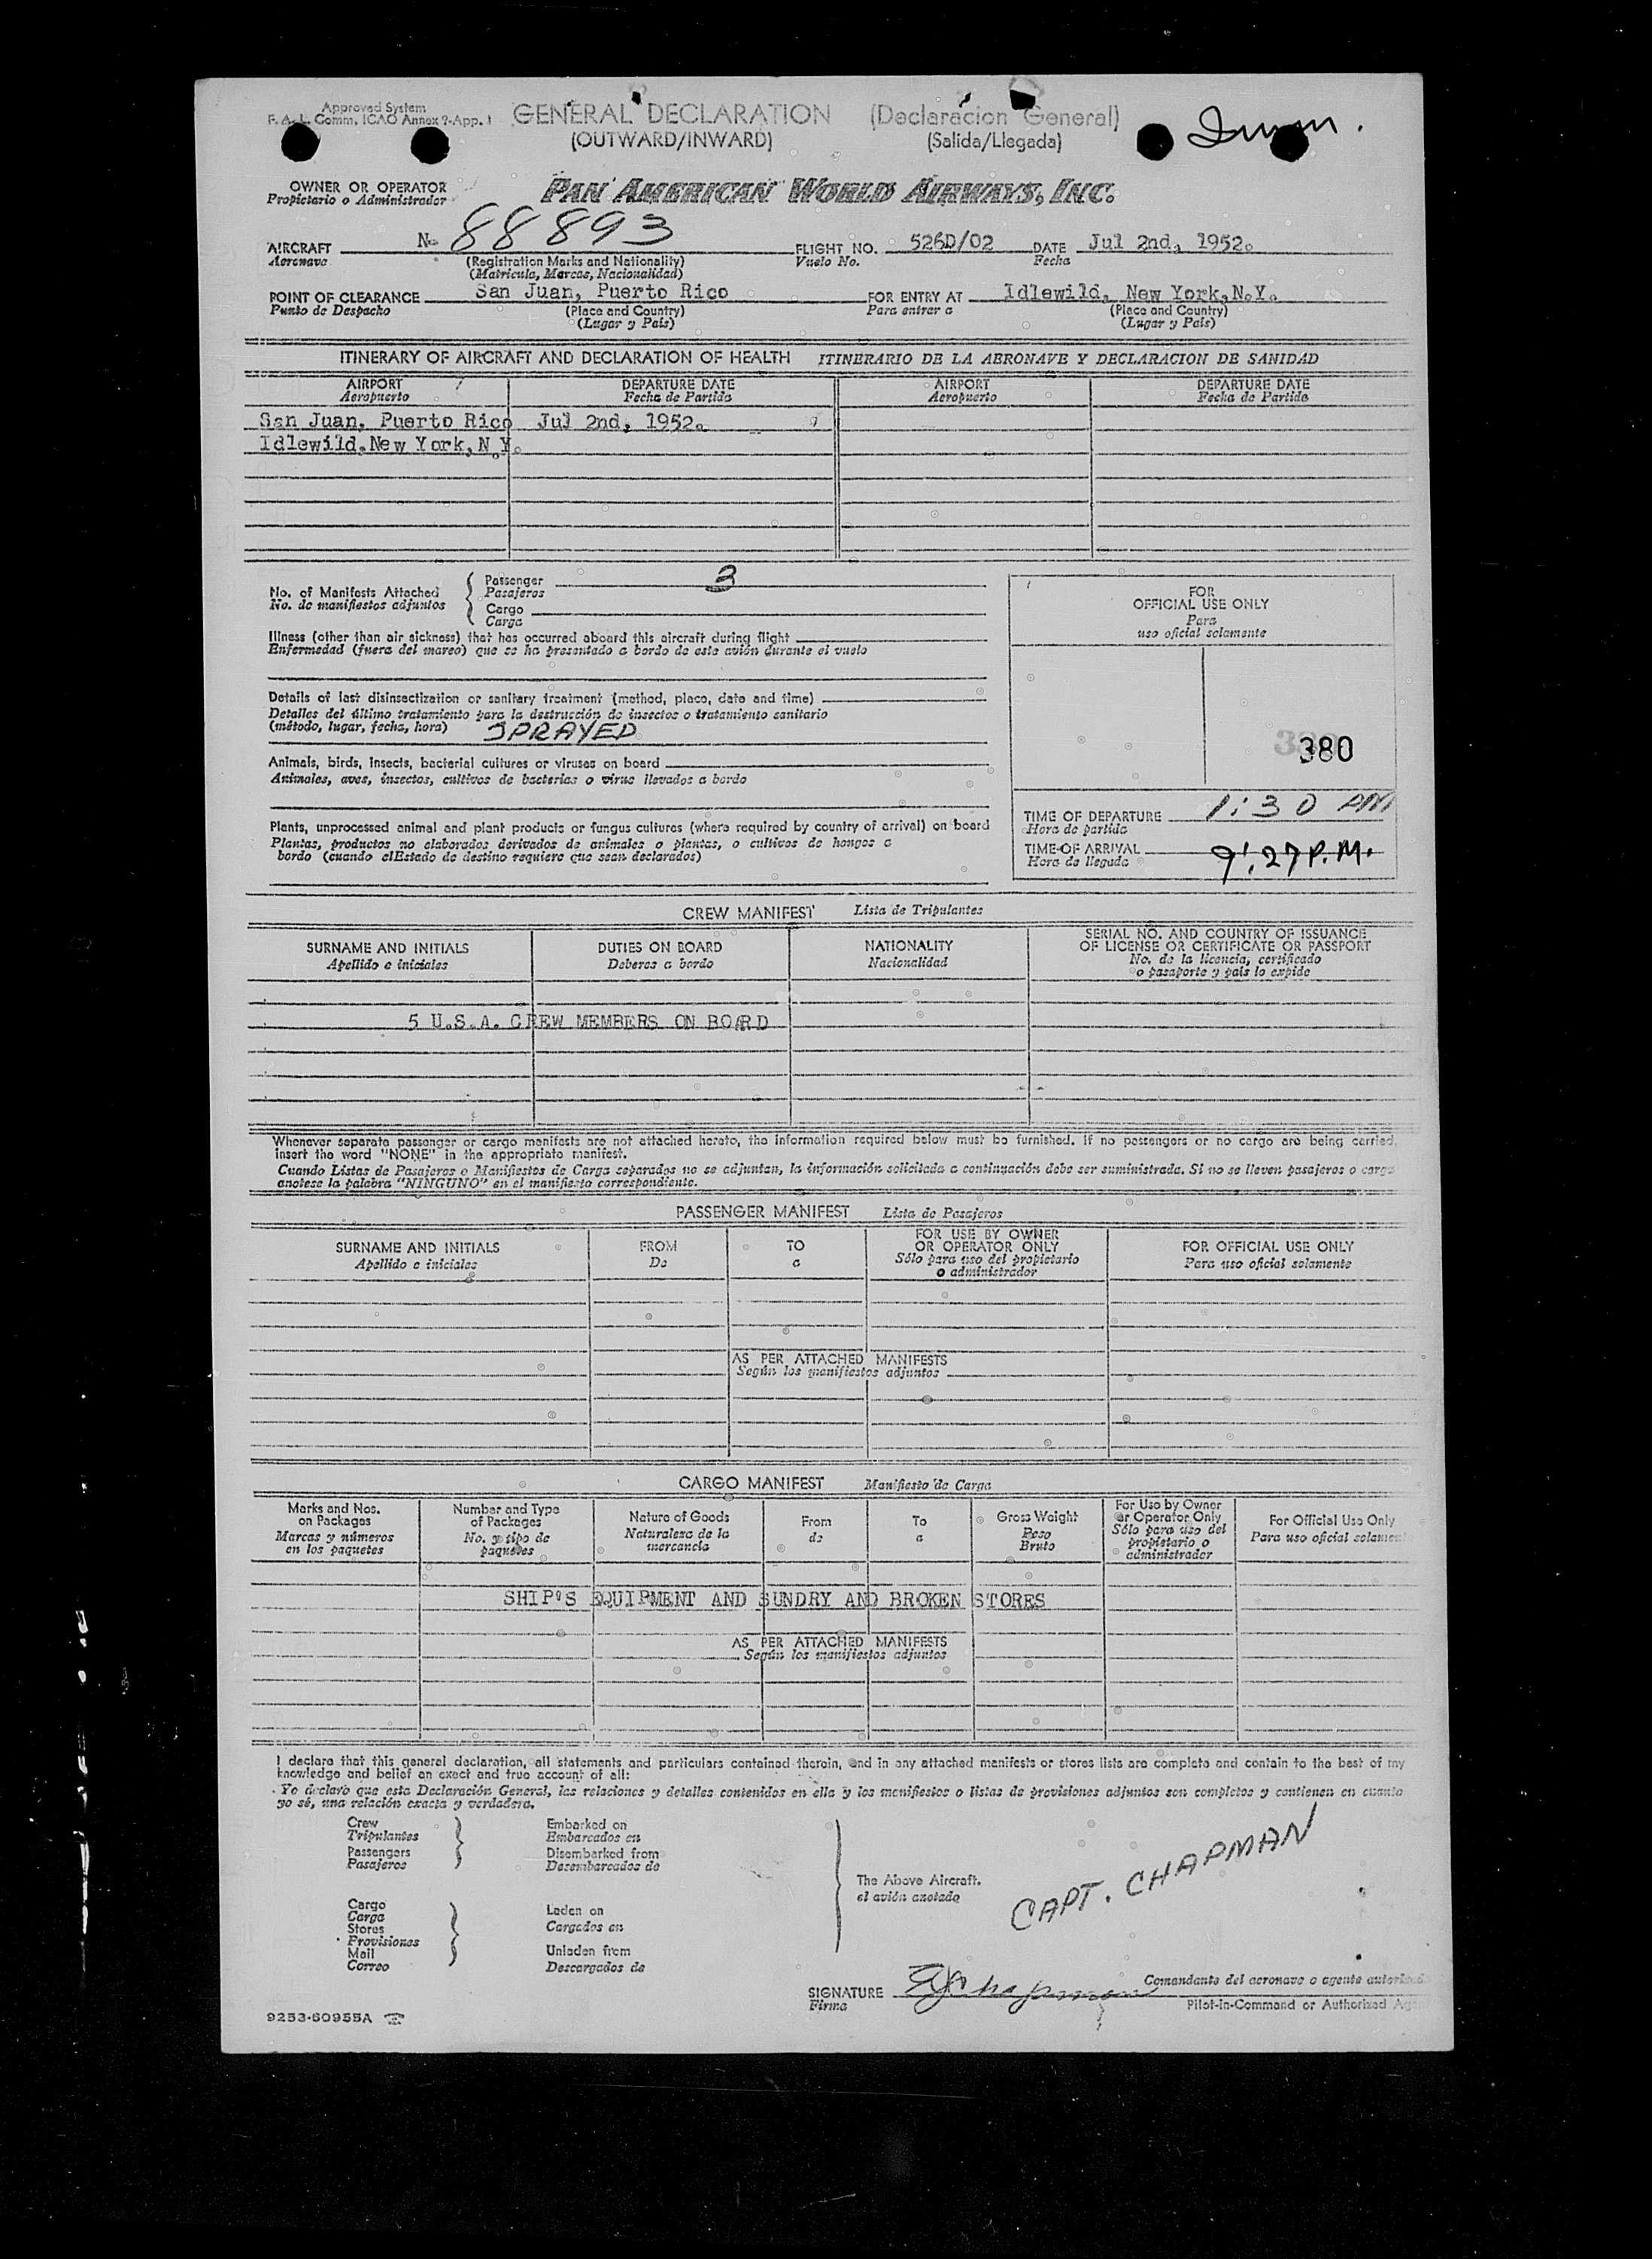 Approved System
F. A. L. Comm. ICAO Annex 9-App. 1
GENERAL DECLARATION (Declaracion General)
(OUTWARD/INWARD) (Salida/Llegada)
OWNER OR OPERATOR
Propietario o Administrador
PAN AMERICAN WORLD AIRWAYS, INC.
AIRCRAFT N- 88893 FLIGHT NO. 526D/02 DATE Jul 2nd, 1952.
Aeronave (Registration Marks and Nationality) Vuelo No. Fecha
(Matricula, Marcas, Nacionalidad)
POINT OF CLEARANCE San Juan, Puerto Rico FOR ENTRY AT Idlewild, New York,N.Y.
Punto de Despacho (Place and Country) Para entrar a (Place and Country)
(Lugar y Pais) (Lugar y Pais)
ITINERARY OF AIRCRAFT AND DECLARATION OF HEALTH ITINERARIO DE LA AERONAVE Y DECLARACION DE SANIDAD
AIRPORT DEPARTURE DATE AIRPORT DEPARTURE DATE
Aeropuerto Fecha de Partida Aeropuerto Fecha de Partida
San Juan, Puerto Rico Jul 2nd, 1952.
Idlewild,New York,N.Y.
No. of Manifests Attached
No. de manifiestos adjuntos
Passenger 3
Pasajeros
Cargo
Carga
Illness (other than air sickness) that has occurred aboard this aircraft during flight
Enfermedad (fuera del mareo) que se ha presentado a bordo de este avión durante el vuelo
Details of last disinsectization or sanitary treatment (method, place, date and time)
Detalles del último tratamiento para la destrucción de insectos o tratamiento sanitario
(método, lugar, fecha, hora) SPRAYED
Animals, birds, insects, bacterial cultures or viruses on board
Animales, aves, insectos, cultivos de bacterias o virus llevados a bordo
Plants, unprocessed animal and plant products or fungus cultures (where required by country of arrival) on board
Plantas, productos no elaborados derivados de animales o plantas, o cultivos de hongos a
bordo (cuando elEstado de destino requiere que sean declarados)
FOR
OFFICIAL USE ONLY
Para
uso oficial solamente
380
TIME OF DEPARTURE 1:30 PM
Hora de partida
TIME OF ARRIVAL 9:27 P.M.
Hora de llegada
CREW MANIFEST Lista de Tripulantes
SURNAME AND INITIALS DUTIES ON BOARD NATIONALITY SERIAL NO. AND COUNTRY OF ISSUANCE
OF LICENSE OR CERTIFICATE OR PASSPORT
Apellido e iniciales Deberes a bordo Nacionalidad No. de la licencia, certificado
o pasaporte y pais lo expide
5 U.S.A. CREW MEMBERS ON BOARD
Whenever separate passenger or cargo manifests are not attached hereto, the information required below must be furnished. If no passengers or no cargo are being carried,
insert the word "NONE" in the appropriate manifest.
Cuando Listas de Pasajeros o Manifiestos de Carga separados no se adjuntan, la información solicitada a continuación debe ser suministrada. Si no se lleven pasajeros o carga
anotese la palabra "NINGUNO" en el manifiesto correspondiente.
PASSENGER MANIFEST Lista de Pasajeros
SURNAME AND INITIALS FROM TO FOR USE BY OWNER
OR OPERATOR ONLY FOR OFFICIAL USE ONLY
Apellido e iniciales De a Sólo para uso del propietario
o administrador Para uso oficial solamente
AS PER ATTACHED MANIFESTS
Según los manifiestos adjuntos
CARGO MANIFEST Manifiesto de Carga
Marks and Nos.
on Packages
Marcas y números
en los paquetes
Number and Type
of Packages
No. y tipo de
paquetes
Nature of Goods
Naturaleza de la
mercancia
From
de
To
a
Gross Weight
Peso
Bruto
For Use by Owner
or Operator Only
Sólo para uso del
propietario o
administrador
For Official Use Only
Para uso oficial solamen
SHIP'S EQUIPMENT AND SUNDRY AND BROKEN STORES
AS PER ATTACHED MANIFESTS
Según los manifiestos adjuntos
I declare that this general declaration, all statements and particulars contained therein, and in any attached manifests or stores lists are complete and contain to the best of my
knowledge and belief an exact and true account of all:
Yo declaro que esta Declaración General, las relaciones y detalles contenidos en ella y los manifiestos o listas de provisiones adjuntos son completos y contienen en cuanto
yo sé, una relación exacta y verdadera.
Crew Embarked on
Tripulantes Embarcados en
Passengers Disembarked from
Pasajeros Desembarcados de
The Above Aircraft.
el avión anotado
Cargo
Carga
Stores
Provisiones
Mail
Correo
Laden on
Cargados en
Unladen from
Descargados de
CAPT. CHAPMAN
SIGNATURE Chapman Comandante del aeronave o agente autoriz
Firma Pilot-in-Command or Authorized Agen
9253-60955A